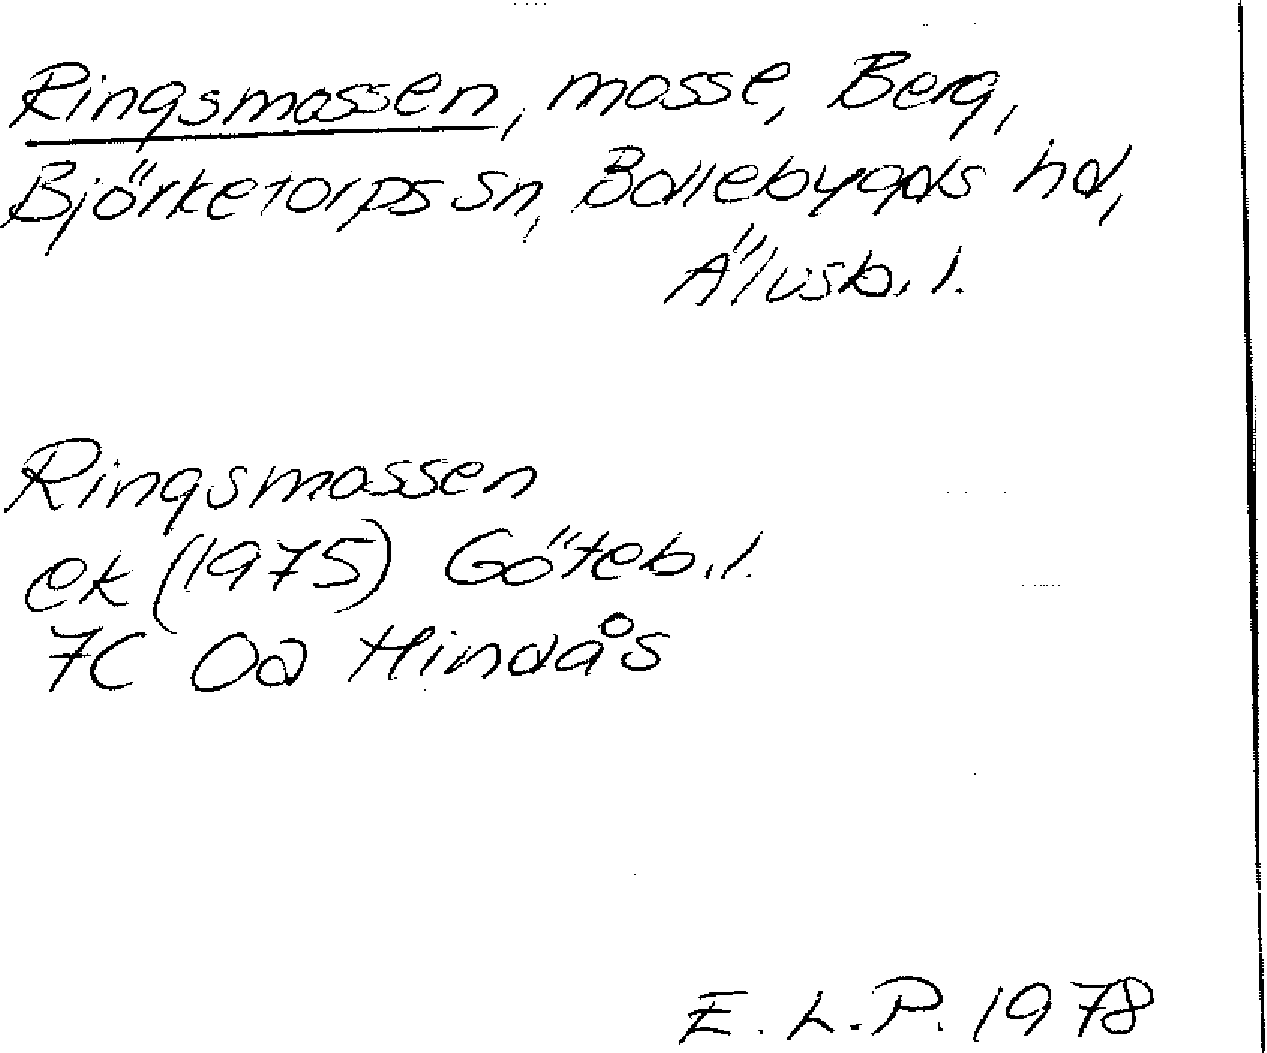 Ringsmossen, mosse, Berg,
Björketorps sn, Bollebygds hd,
Älvsb. l.
Ringsmossen
ek (1975) Göteb. l.
7C 0a Hindås
E. L. P. 1978